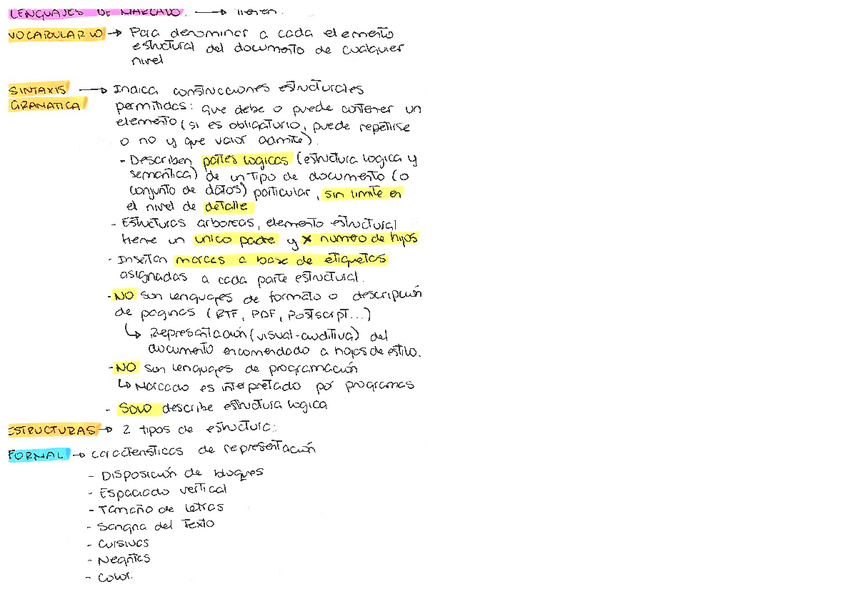 LENGUAJES DE MARCADO. → tienen.
VOCABULARIO → Para denominar a cada elemento
estructural del documento de cualquier
nivel
SINTAXIS → Indica construcciones estructurales
GRAMATICA permitidas: que debe o puede contener un
elemento (si es obligatorio, puede repetirse
o no y que valor admite).
- Describen partes logicas (estructura logica y
semantica) de un tipo de documento (o
conjunto de datos) particular, sin limite en
el nivel de detalle
- Estructuras arboreas, elemento estructural
tiene un unico padre y x numero de hijos
- Insertan marcas a base de etiquetas
asignadas a cada parte estructural.
- NO son lenguajes de formato o descripción
de paginas (RTF, PDF, Postscript...)
↳ Representación (visual-auditiva) del
documento encomendado a hojas de estilo.
- NO son lenguajes de programación
↳ Marcado es interpretado por programas
- Solo describe estructura logica
ESTRUCTURAS → 2 tipos de estructura:
FORMAL → características de representación
- Disposición de bloques
- Espaciado vertical
- Tamaño de letras
- Sangria del Texto
- Cursivas
- Negritas
- Color.